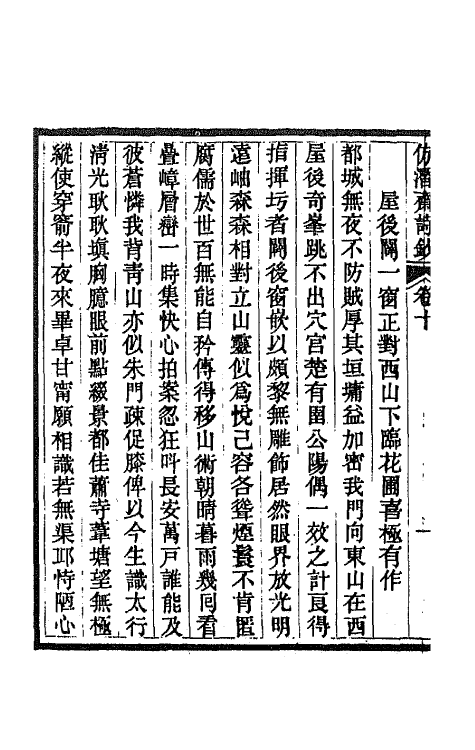 仿潛齋詩鈔 卷十
屋後闢一窗正對西山下臨花圃喜極有作
都城無夜不防賊厚其垣墉益加密我門向東山在西
屋後奇峯跳不出穴宮楚有圉公陽偶一效之計良得
指揮圬者闢後窗嵌以頗黎無雕飾居然眼界放光明
遠岫森森相對立山靈似爲悅己容各聳煙鬟不肯匿
腐儒於世百無能自矜傳得移山術朝晴暮雨幾回看
疊嶂層巒一時集快心拍案忽狂呌長安萬戸誰能及
彼蒼憐我背靑山亦似朱門疎促膝俾以今生識太行
淸光耿耿塡胸臆眼前點綴景都佳蕭寺葦塘望無極
縱使穿窬半夜來畢卓甘甯願相識若無渠邛恃陋心